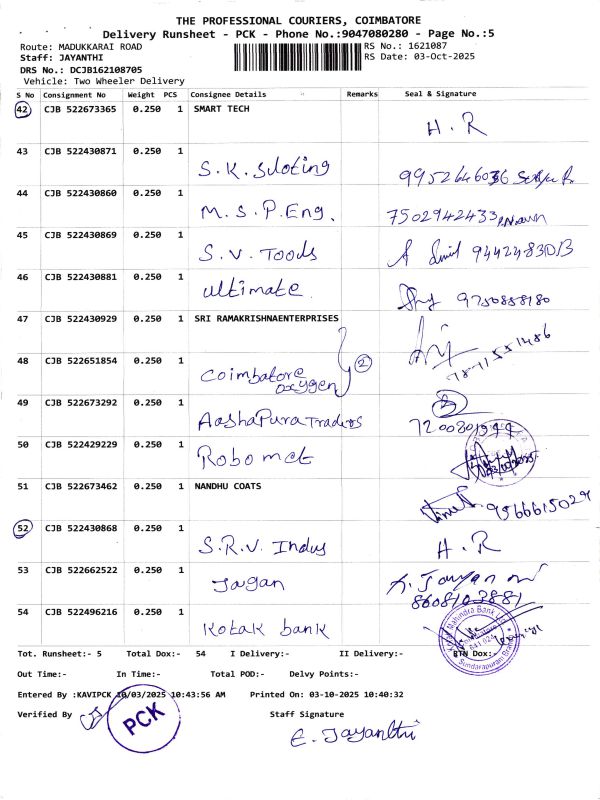 THE PROFESSIONAL COURIERS, COIMBATORE
Delivery Runsheet - PCK - Phone No.:9047080280 - Page No.:5
Route: MADUKKARAI ROAD
RS No.: 1621087
Staff: JAYANTHI
RS Date: 03-Oct-2025
DRS No.: DCJB162108705
Vehicle: Two Wheeler Delivery
S No Consignment No Weight PCS Consignee Details Remarks Seal & Signature
42 CJB 522673365 0.250 1 SMART TECH H.R
43 CJB 522430871 0.250 1 S.K. Sloting
44 CJB 522430860 0.250 1 M.S.P.Eng. 7502942433
45 CJB 522430869 0.250 1 S.V. Toods
46 CJB 522430881 0.250 1 ultimate 9750858180
47 CJB 522430929 0.250 1 SRI RAMAKRISHNAENTERPRISES
48 CJB 522651854 0.250 1 Coimbatore oxygen 2
49 CJB 522673292 0.250 1 AashaPura Traders
50 CJB 522429229 0.250 1 Robo met
51 CJB 522673462 0.250 1 NANDHU COATS 9566615029
52 CJB 522430868 0.250 1 S.R.V. Indus H.R
53 CJB 522662522 0.250 1 Jagan
8608103881
54 CJB 522496216 0.250 1 Kotak bank
Mahindra Bank
641 024
Sundarapuram
Tot. Runsheet:- 5 Total Dox:- 54 I Delivery:- II Delivery:- BTN Dox:-
Out Time:- In Time:- Total POD:- Delvy Points:-
Entered By :KAVIPCK 10/03/2025 10:43:56 AM Printed On: 03-10-2025 10:40:32
Verified By PCK Staff Signature
E. Jayanthi